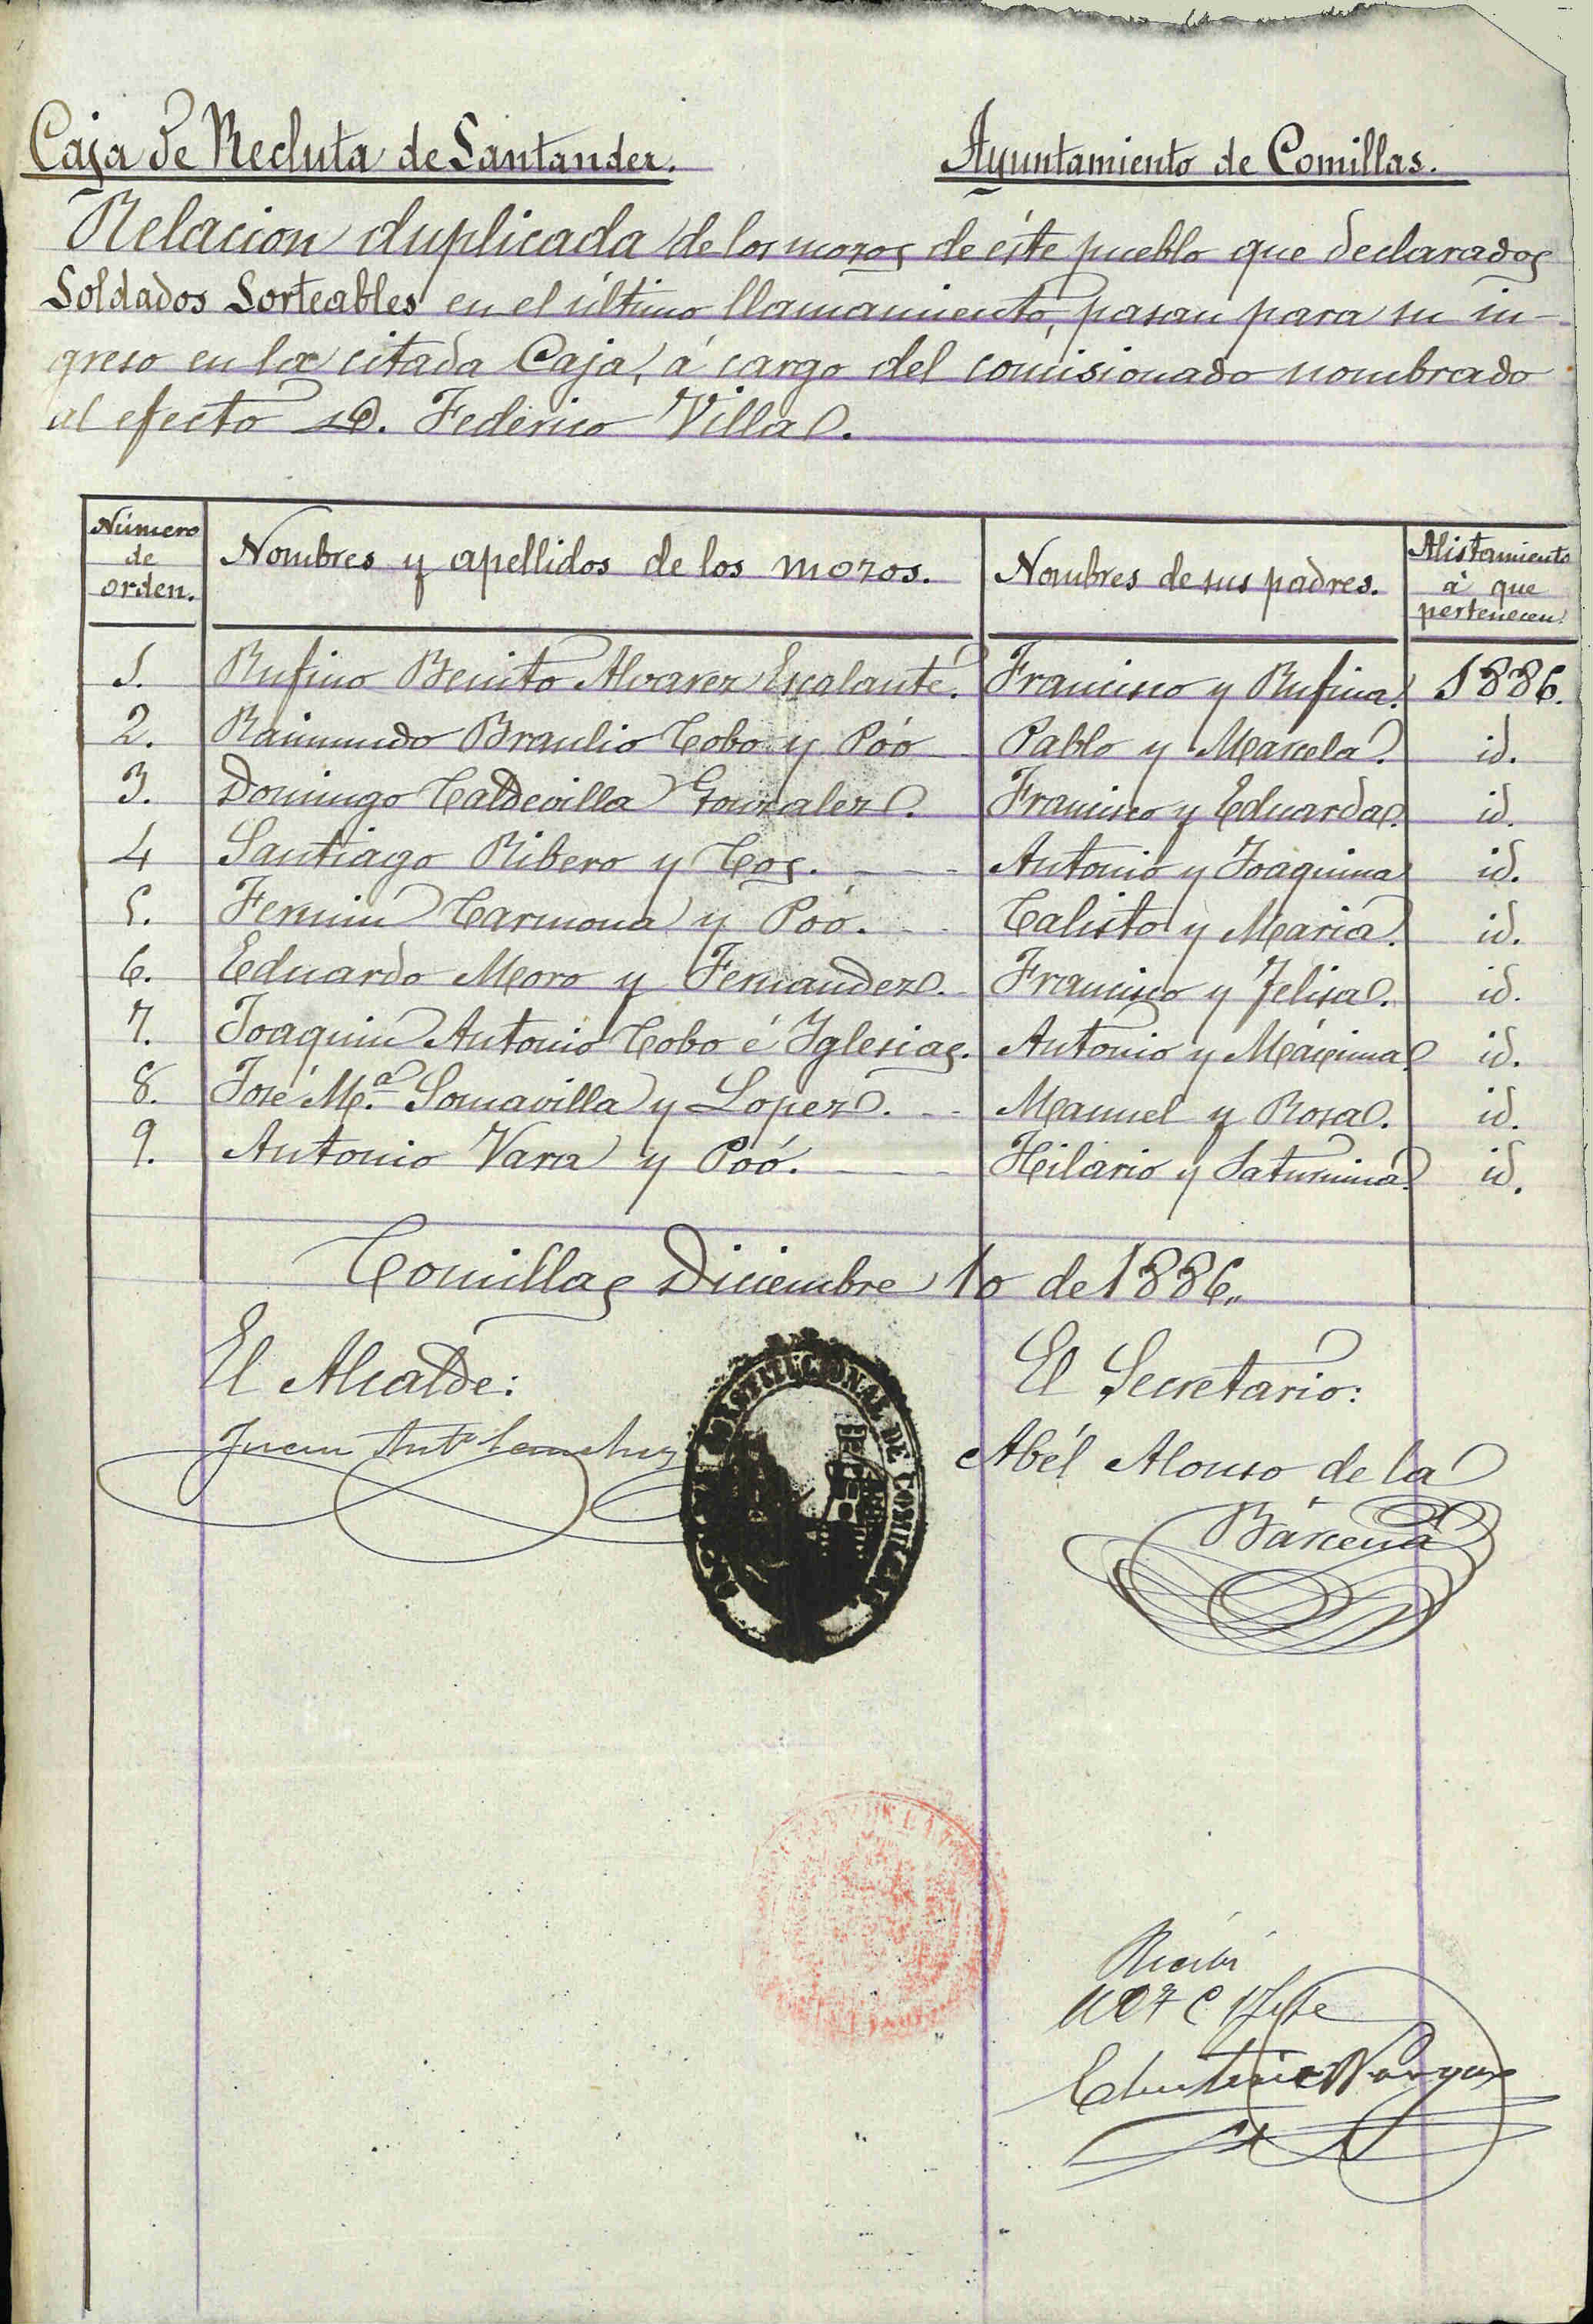 Caja de Recluta de Santander. Ayuntamiento de Comillas.
Relacion duplicada de los mozos de éste pueblo que declarados
Soldados Sorteables en el último llamamiento, pasan para su in-
greso en la citada Caja, á cargo del comisionado nombrado
al efecto D. Federico Villa.
Número de orden. Nombres y apellidos de los mozos. Nombres de sus padres. Alistamiento á que pertenecen.
1. Rufino Benito Alvarez Escalante. Francisco y Rufina. 1886.
2. Raimundo Braulio Cobo y Póo Pablo y Marcela. id.
3. Domingo Caldevilla Gonzalez. Francisco y Eduarda. id.
4 Santiago Ribero y Cos. Antonio y Joaquina id.
5. Fermin Carmona y Póo. Calisto y Maria. id.
6. Eduardo Moro y Fernandez. Francisco y Felisa. id.
7. Joaquin Antonio Cobo é Iglesias. Antonio y Máxima. id.
8. José M.ª Somavilla y Lopez. Manuel y Rosa. id.
9. Antonio Vara y Póo. Hilario y Saturnina. id.
Comillas Diciembre 10 de 1886.
El Alcalde: El Secretario:
Juan Antº Sanchez Abél Alonso de la
Bárcena
CONSTITUCIONAL DE COMILLAS
Recibi